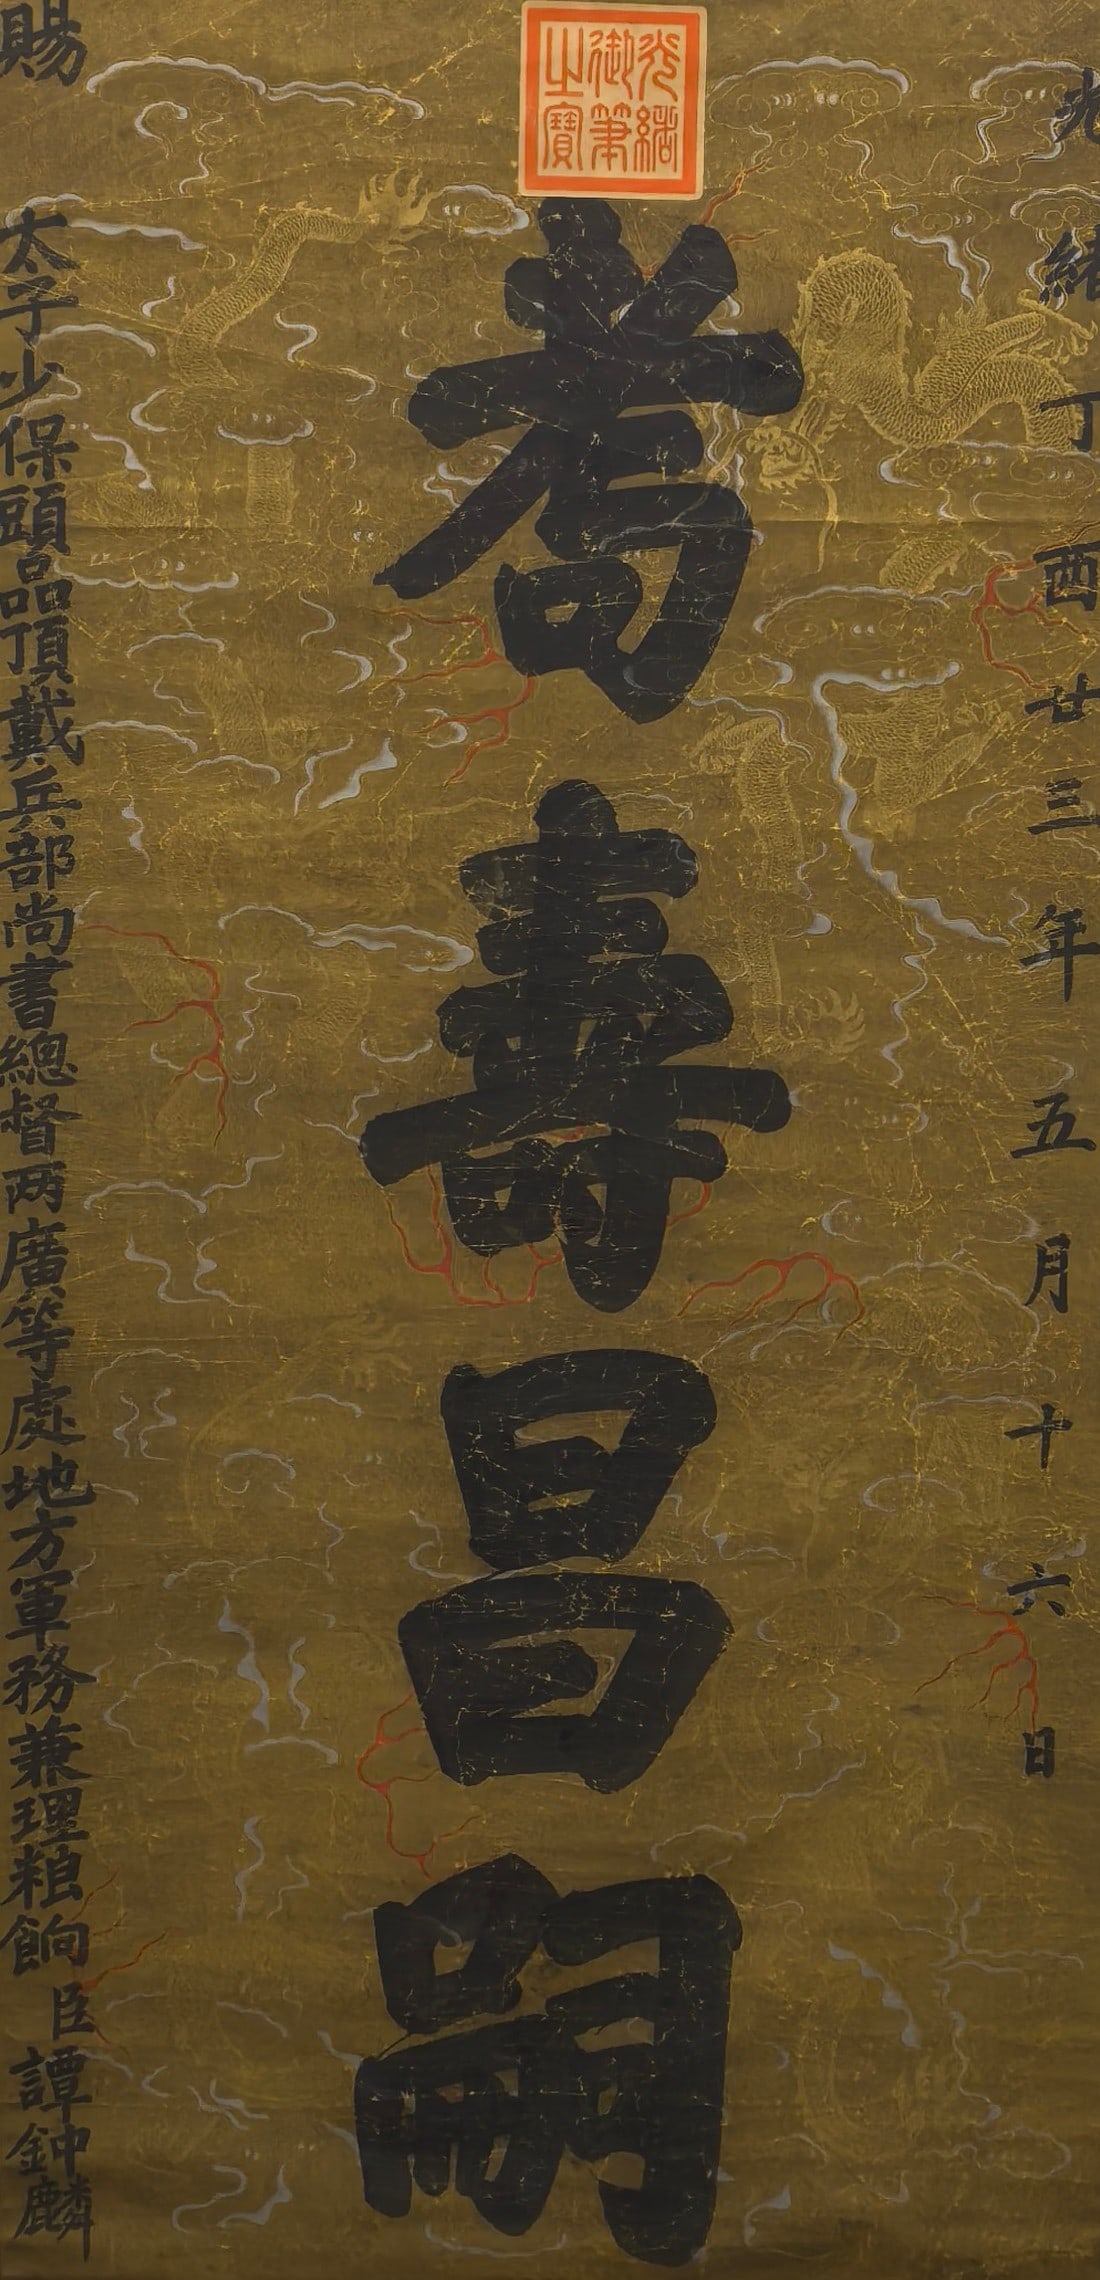 光緒御筆之寶
光緒丁酉廿三年五月十六日
耇壽昌嗣
賜
太子少保頭品頂戴兵部尚書總督两廣等處地方軍務兼理粮餉臣譚鈡麟